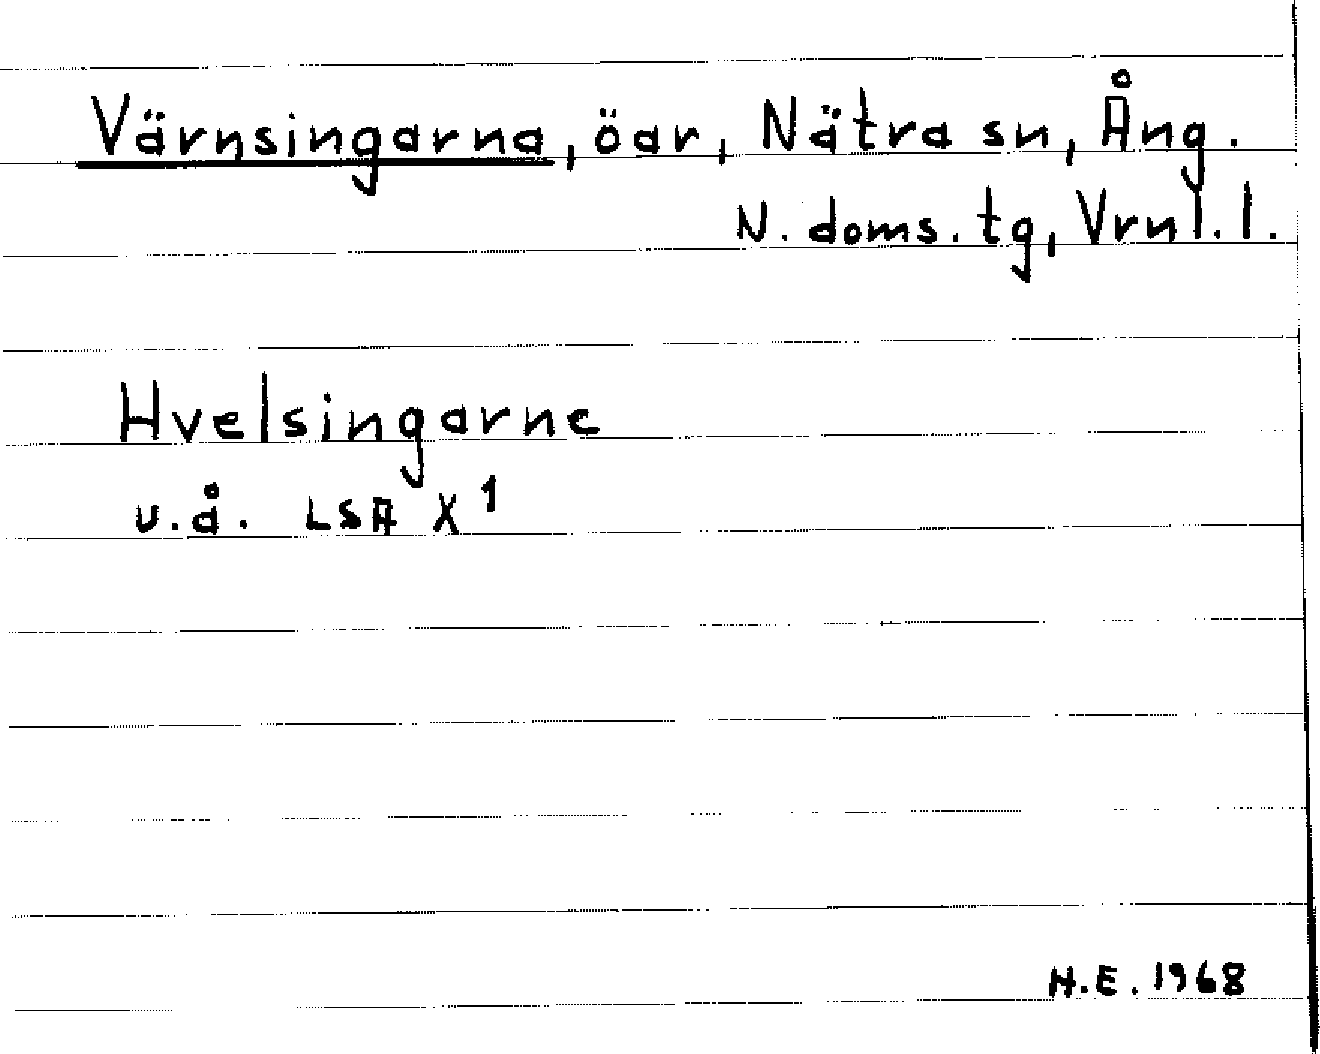 Värnsingarna, öar, Nätra sn, Ång.
N. doms. tg, Vrnl. l.
Hvelsingarne
u.å. LSA X¹
H.E. 1968